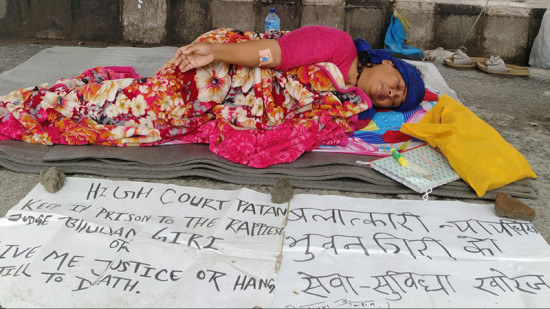 HIGH COURT PATAN
KEEP IN PRISON TO THE RAPPIEST
JUDGE BHUWAN GIRI
OR
IVE ME JUSTICE OR HANG
TILL TO DEATH.
बलात्कारी
भुवन गिरी को
सेवा-सुविधा